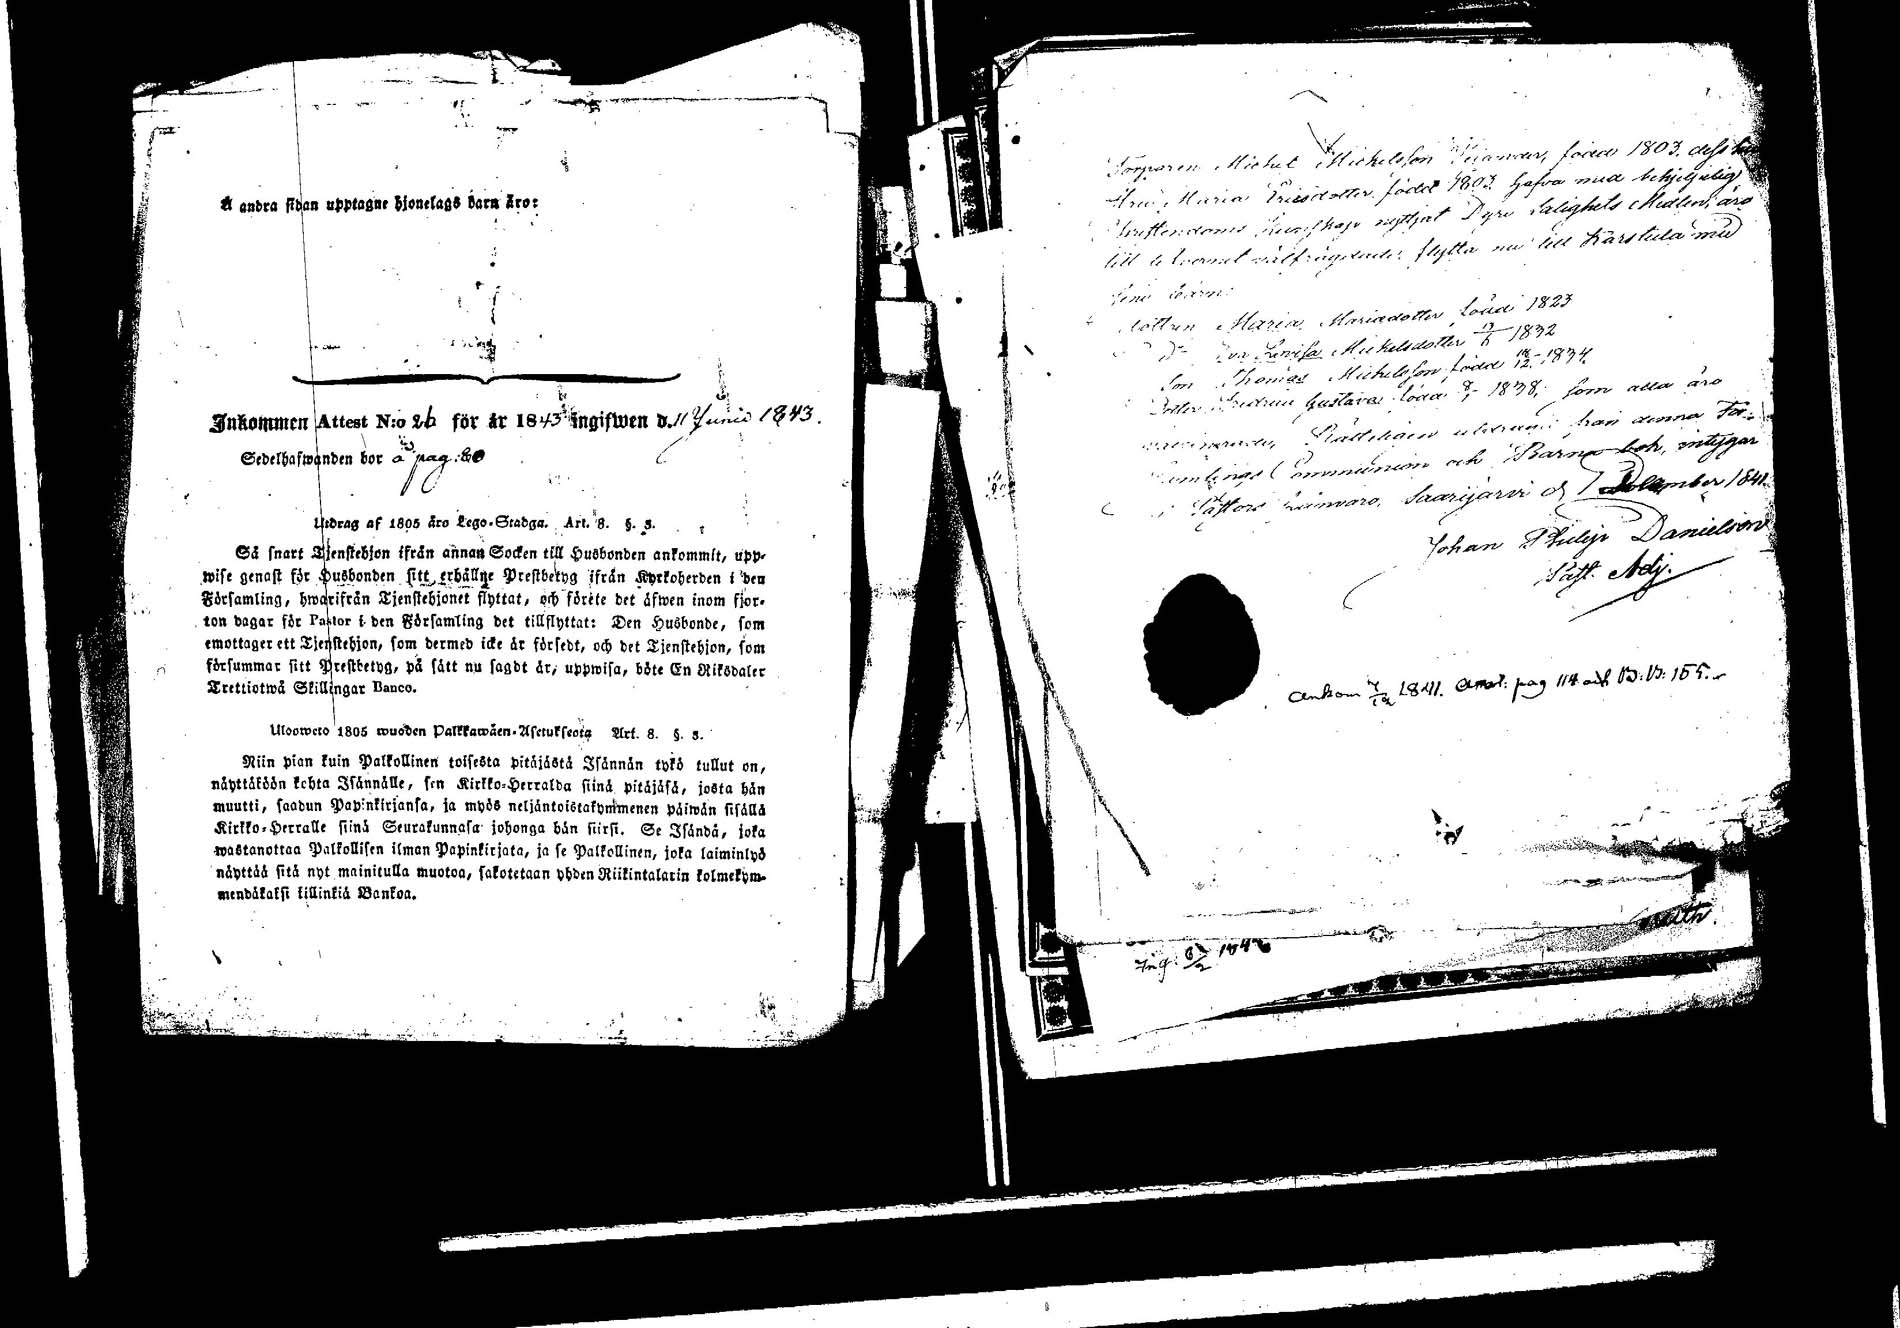 Å andra sidan upptagne hjonelags barn äro:
Inkommen Attest N:o 26 för år 1843 ingifwen d. 11 Junii 1843.
Sedelhafwanden bor å pag: 80
Utdrag af 1805 åro Lego-Stadga. Art. 8. §. 3.
Så snart Tjenstehjon ifrån annan Socken till Husbonden ankommit, upp-
wise genast för Husbonden sitt erhållne Prestbetyg ifrån Kyrkoherden i den
Församling, hwarifrån Tjenstehjonet flyttat, och förete det äfwen inom fjor-
ton dagar för Pastor i den Församling det tillflyttat: Den Husbonde, som
emottager ett Tjenstehjon, som dermed icke är försedt, och det Tjenstehjon, som
försummar sitt Prestbetyg, på sätt nu sagdt är, uppwisa, böte En Riksdaler
Trettiotwå Skillingar Banco.
Uloowcto 1805 wuoden Palkkawäen-Asetuksesta Art. 8. §. 3.
Niin pian kuin Palkollinen toisesta pitäjästä Isännän tykö tullut on,
näyttäköön kohta Isännälle, sen Kirkko-Herralda siinä pitäjäsä, josta hän
muutti, saadun Papinkirjansa, ja myös neljäntoistakymmenen päiwän sisällä
Kirkko-Herralle siinä Seurakunnasa johonga hän siirsi. Se Isändä, joka
wastanottaa Palkollisen ilman Papinkirjata, ja se Palkollinen, joka laiminlyö
näyttää sitä nyt mainitulla muotoa, sakotetaan yhden Riikintalarin kolmekym-
mendäkaksi killinkiä Bankoa.
Torparen Michel Michelsson född 1803, dess hu
stru Maria Ericsdotter född 1803, hafva med behjelpelig
Christendoms Kunskap nyttjat Dyre Salighets Medlen, äro
till lefvernet välfrägdade, flytta nu till Karstula med
sine barn:
dottren Maria Mariadotter född 1823
D:o Eva Lovisa Michelsdotter 1832
Son Thomas Michelsson född 12 1834
Dotter Gustava född 1838, som alla äro
vaccinerade, utdraget från denna För-
samlings Communion och Barna bok, intygar
i Pastors frånvaro, Saarijärvi d 7 December 1841.
Johan Philip Danielson
Past. Adj.
Ankom 1841. Annot: pag 114 och B: B: 155.
Ing. 6/2 1842